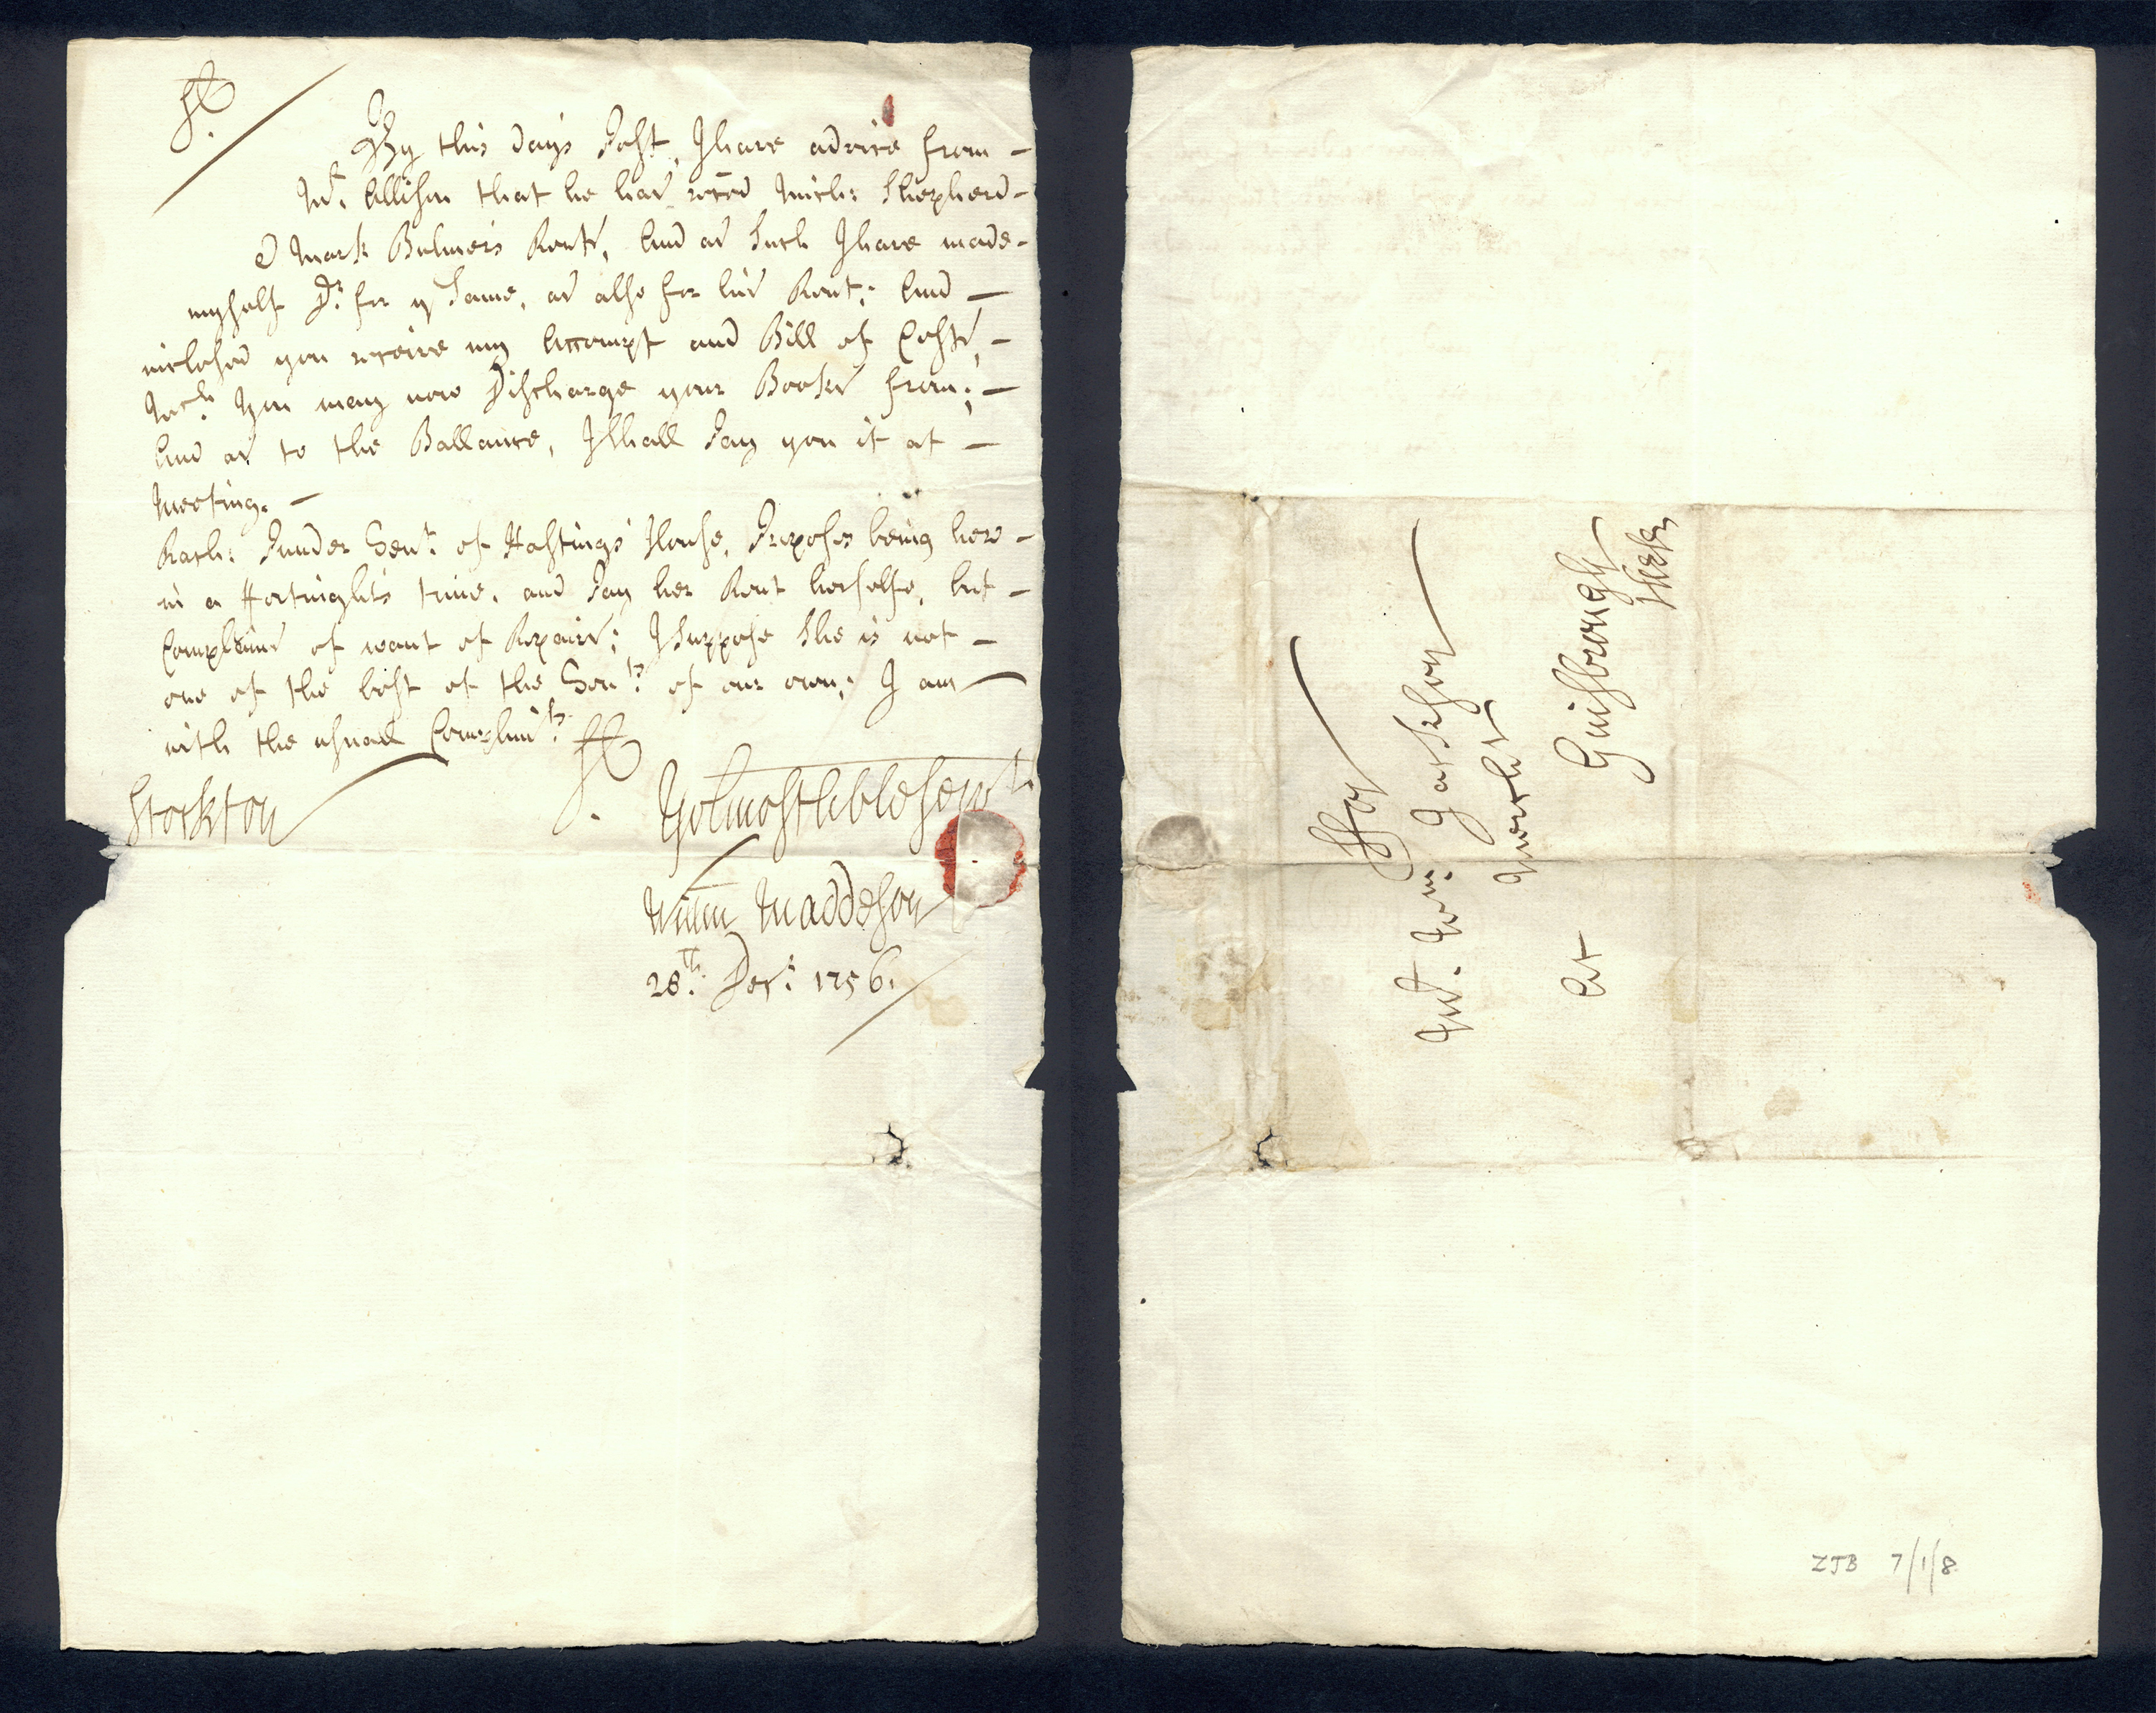 Sr.
By this days Post, I have advice from –
Mr. Allison that he has reced Mich: Shepherd –
& Mark Bulmer's Rents, And as Such I have made –
myself Dr. for ye Same, as also for his Rent; And –
inclosed you receive my Accompt and Bill of Costs, –
Wch. You may now Discharge your Books from; –
And as to the Ballance, I Shall Pay you it at –
Meeting. –
Rach: Tent. of Hastings House, Purposes being here –
in a Fortnights time, and Pay her Rent herselfe, but –
Complains of want of Repairs; I Suppose She is not –
one of the best of the Tents. of our own; I am
with the usual Complimts.
Sr.
Stockton
Yor. most hble Servt.
Willm Maddeson
28th. Decr. 1756.
Ffor
Mr. Wm. Jackson
Mercht
At Guisbrough
These
ZJB 7/1/8